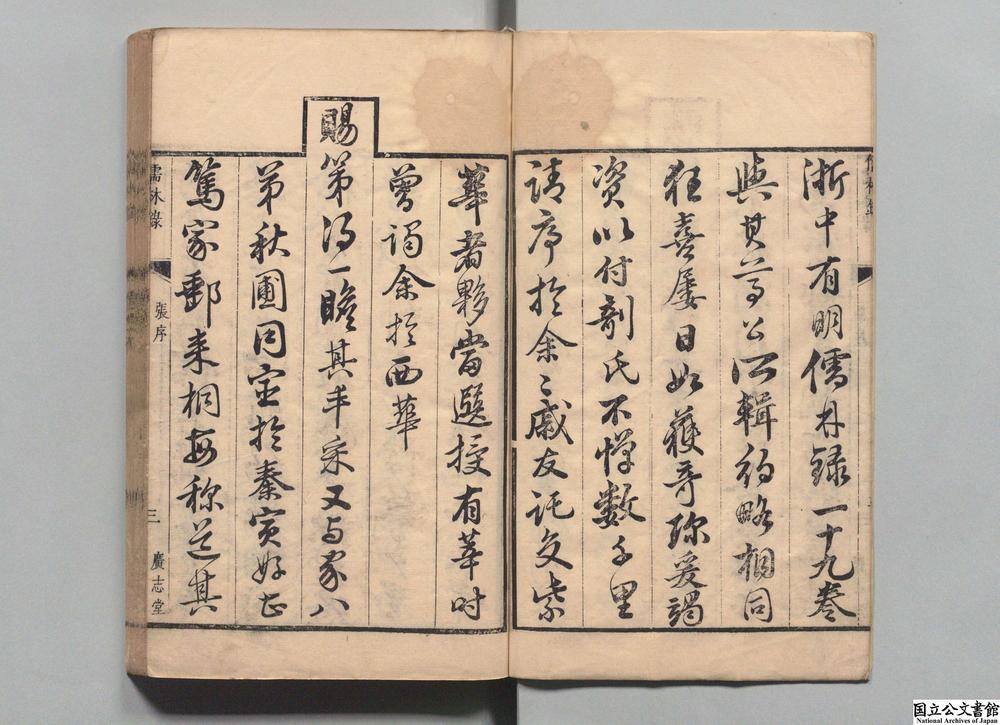 浙中有明儒林録一十九卷
與其尊公所輯約略相同
狂喜屢日如獲奇珎爰竭
资以付剞氏不憚数千里
請序於余〻戚友託交紫
華者夥當選授有莘时
曾谒余於西華
賜第得一瞻其丰采又与家八
弟秋圃同宦於秦寅好甚
篤家郵来桐每称道其
儒林錄
張序
三
廣志堂
国立公文書館
National Archives of Japan